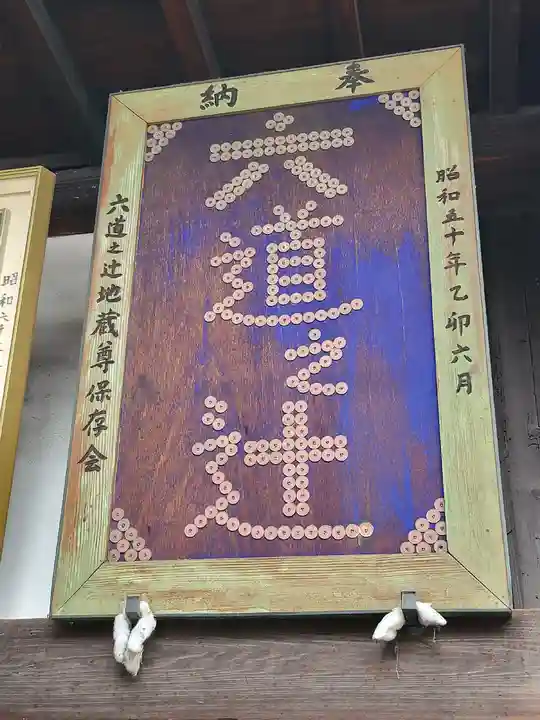 奉納
昭和五十年乙卯六月
六道之辻
六道之辻地蔵尊保存会
昭和六